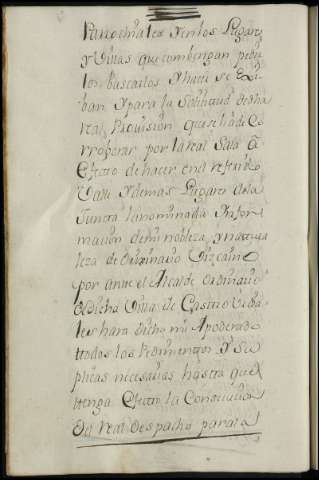 Parrochiales y en los Lugares
y Villas que combengan pedir
los buscarlos y hacer se Exi
ban y para la Solicitud de d.ha
real Provision que se ha de Co
rroborar por la real Sala a
Efecto de hacer en el referido
Valle y demas Lugares de la
Junta la nominada Infor
macion de mi nobleza y natura
leza de Originario Vizcaino
por ante el Alcalde ordinario
de dicha Villa de Castro Urdia
les hara dicho mi Apoderado
ttodos los Pedimentos y Su
plicas nicesarias hasta que
ttenga Efecto la Consecucion
del real despacho para la